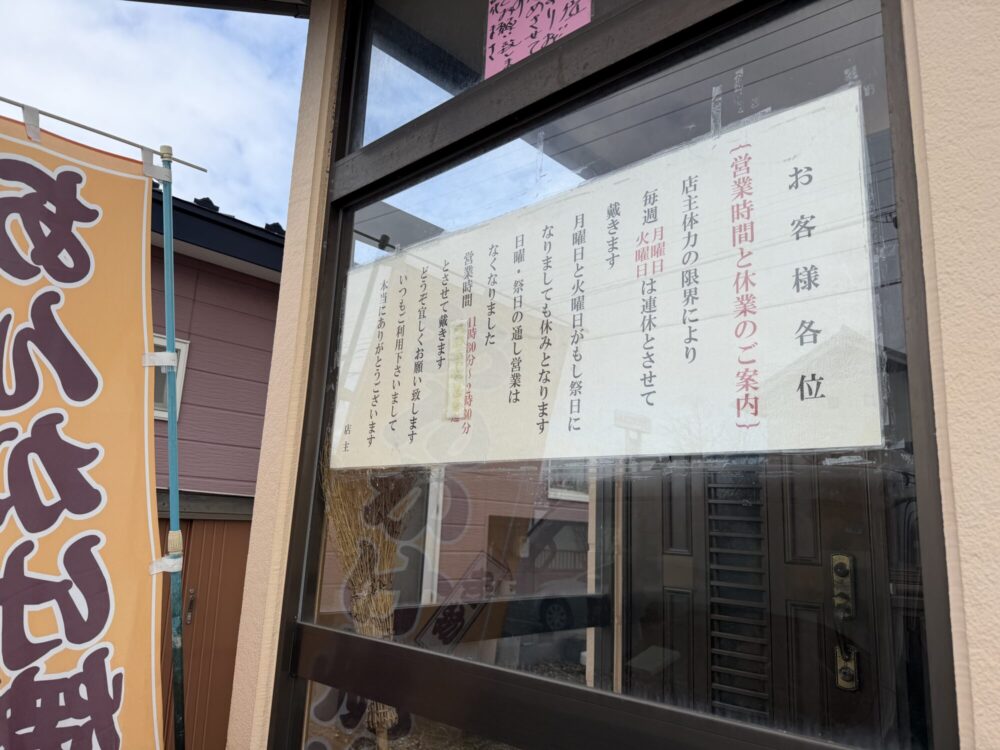 お客様各位
{営業時間と休業のご案内}
店主体力の限界により
毎週月曜日火曜日は連休とさせて
戴きます
月曜日と火曜日がもし祭日に
なりましても休みとなります
日曜・祭日の通し営業は
なくなりました
営業時間 11時30分～2時30分
とさせて戴きます
どうぞ宜しくお願い致します
いつもご利用下さいまして
本当にありがとうございます
店主
あんかけ焼